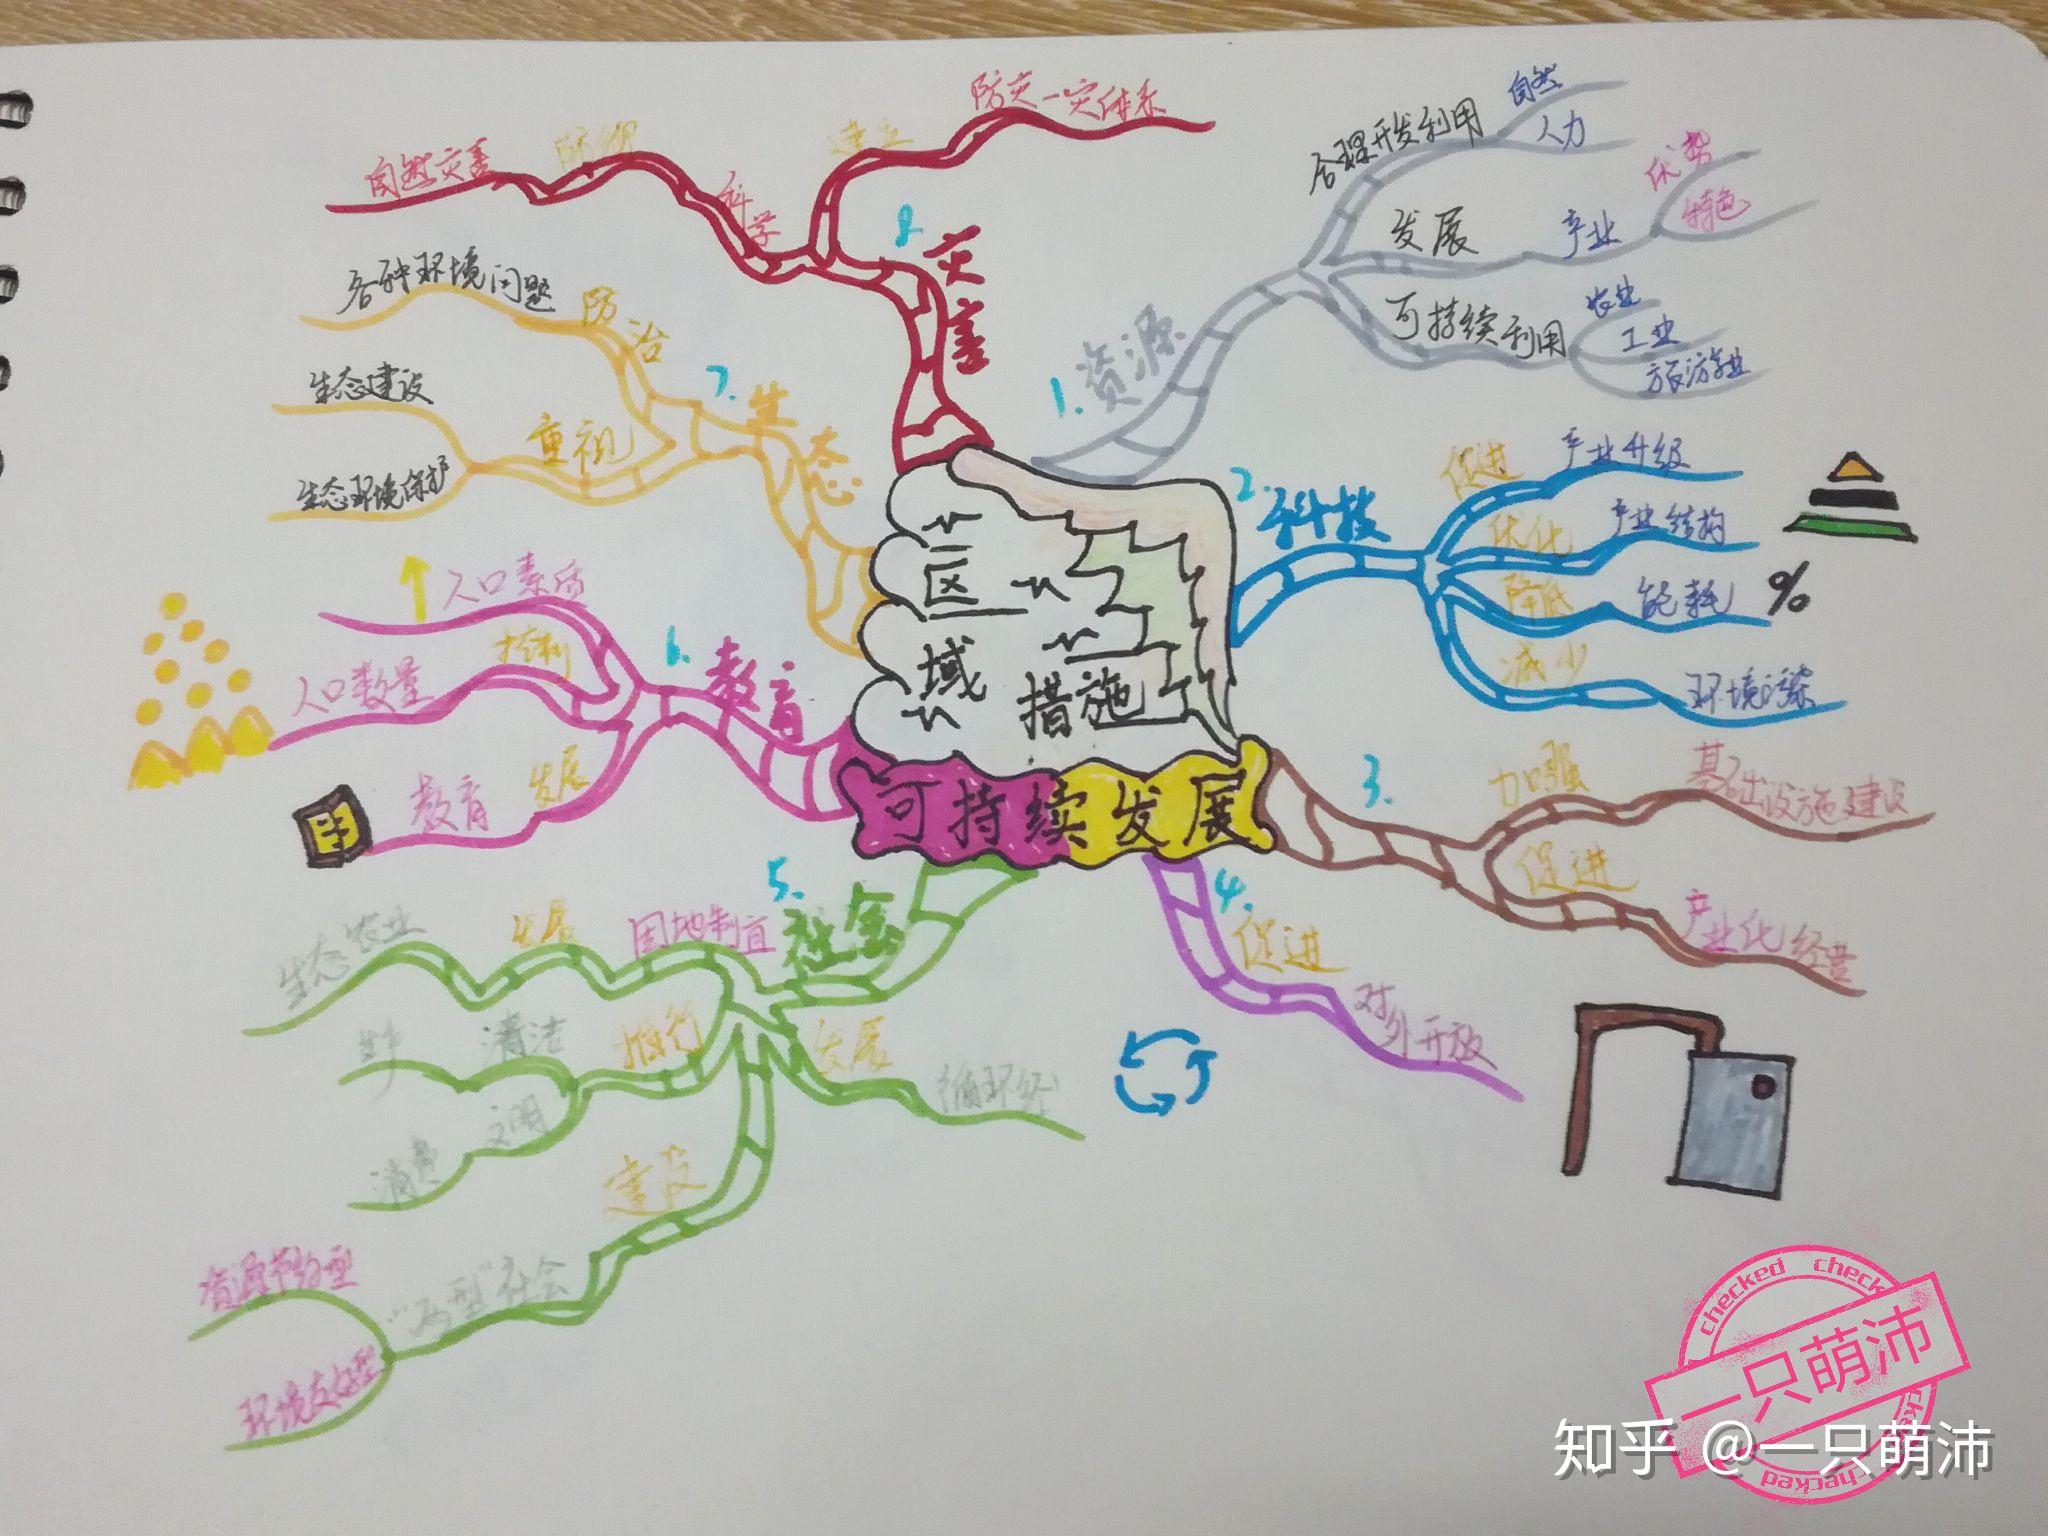 区域
措施
可持续发展
1.资源
合理开发利用
自然
人力
发展
产业
优势
特色
可持续利用
农业
工业
旅游业
2.科技
促进
产业升级
优化
产业结构
降低
能耗
%
减少
环境污染
3.
加强
基础设施建设
促进
产业化经营
4.
促进
对外开放
5.社会
因地制宜
发展
生态农业
推行
清洁
生产
文明
消费
发展
循环经
建设
"两型"社会
资源节约型
环境友好型
6.教育
人口素质
控制
人口数量
发展
教育
7.生态
防治
各种环境问题
重视
生态建设
生态环境保护
8.灾害
科学
防御
自然灾害
建立
防灾一灾体系
checked check
一只萌沛
checked
知乎 @一只萌沛